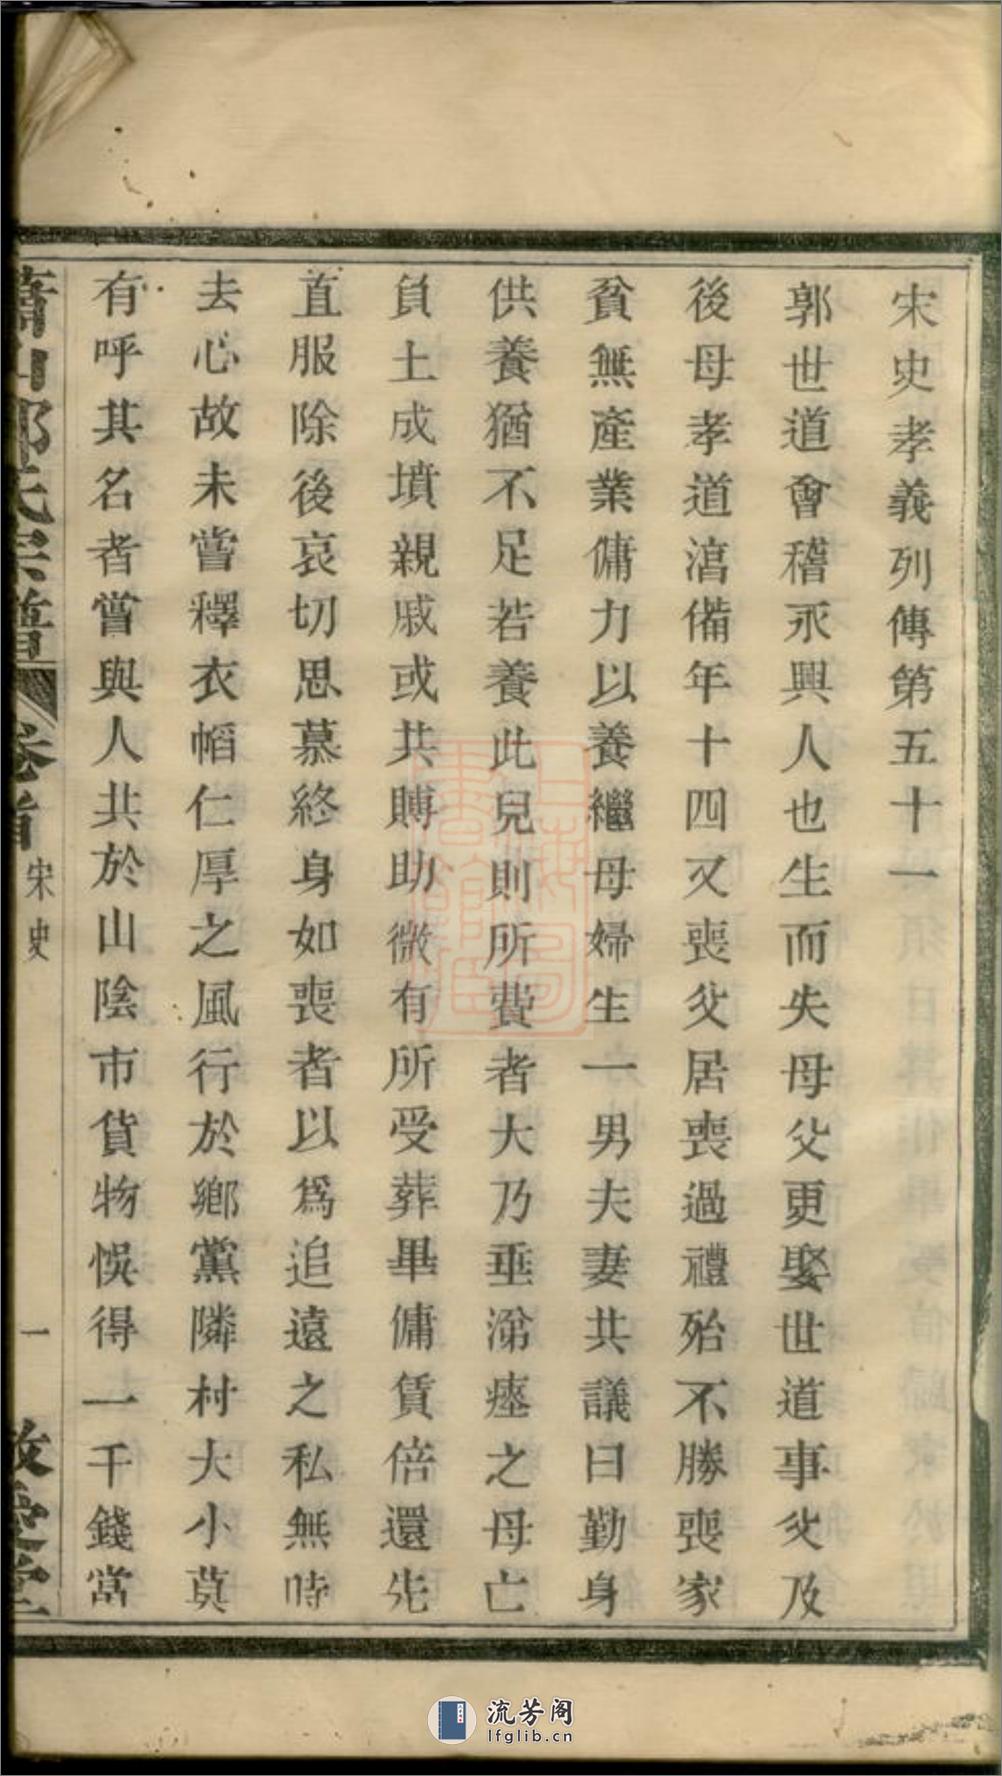 宋史孝義列傳第五十一
郭世道會稽永興人也生而失母父更娶世道事父及
後母孝道淯備年十四又喪父居喪過禮殆不勝喪家
貧無產業傭力以養繼母婦生一男夫妻共議曰勤身
供養猶不足若養此兒則所費者大乃垂涕瘞之母亡
負土成墳親戚或共賻助微有所受葬畢傭賃倍還先
直服除後哀切思慕終身如喪者以爲追遠之私無時
去心故未嘗釋衣幍仁厚之風行於鄉黨隣村大小莫
有呼其名者嘗與人共於山陰市貨物悞得一千錢當
蕭山郭氏宗譜 卷首 宋史 一
流芳阁
lfglib.cn